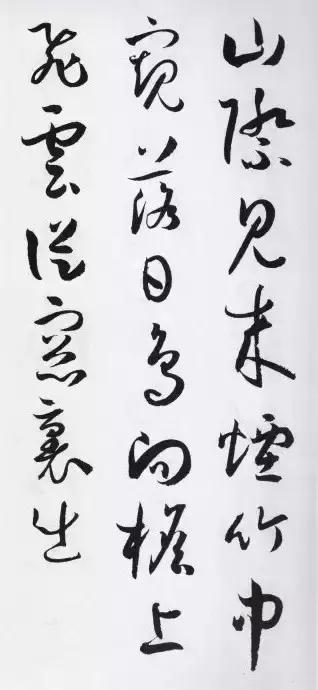 山際見来煙竹中
窺落日鳥向檐上
飛雲從窗裏出